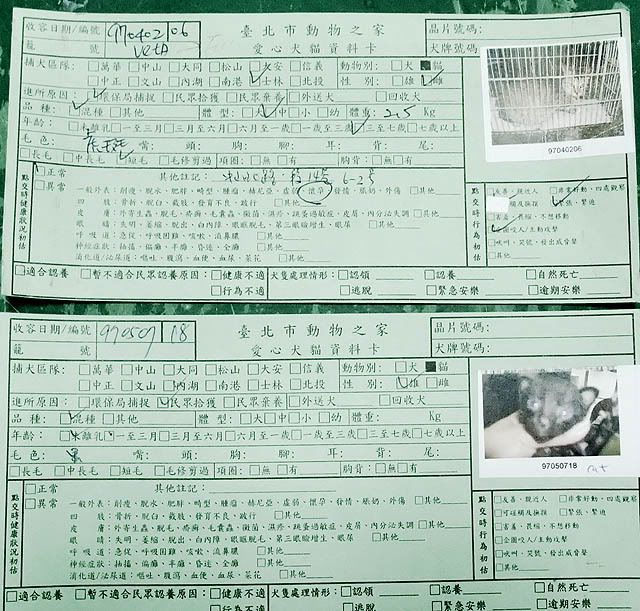 收容日期/編號 970402 06 臺北市動物之家 晶片號碼:
籠 號 愛心犬貓資料卡 犬牌號碼:
捕犬區隊: □萬華 □中山 □大同 □松山 □大安 □信義 動物別: □犬 ■貓
□中正 □文山 □內湖 □南港 □士林 □北投 性 別: □雄 □雌
進所原因: □環保局捕捉 □民眾拾獲 □民眾棄養 □外送犬 □回收犬
品 種: □混種 □其他 體 型: □大 □中 □小 □幼 體重: 2.5 Kg
年齡: □未離乳 □一至三月 □三月至六月 □六月至一歲 □一歲至三歲 □三至七歲 □七歲以上
毛 色: 嘴: 頭: 胸: 腳: 耳: 背: 尾:
□長毛 □中長毛 □短毛 □毛修剪過 項圈: □無 □有 胸背: □無 □有
97040206
點交時健康狀況初估 □正常 其他註記:
□異常 一般外表: 削瘦、脫水、肥胖、畸型、腫瘤、赫尼亞、虛弱、懷孕、發情、脹奶、外傷 □其他
四 肢: 骨折、脫臼、截肢、發育不良、跛行 □其他
皮 膚: 外寄生蟲、脫毛、疥癬、毛囊蟲、黴菌、濕疹、跳蚤過敏症、皮屑、內分泌失調 □其他
眼 睛: 失明、萎縮、脫出、白內障、眼瞼脫毛、第三眼瞼增生、眼屎 □其他
呼 吸 道: 急促、呼吸困難、咳嗽、流鼻膿 □其他
神經症狀: 抽搐、偏癱、半癱、昏迷、全癱 □其他
消化道/泌尿道: 嘔吐、腹瀉、血便、血尿、菜花 □其他
點交時行為初估 □友善、親近人 □非常好動、四處觀察
□可碰觸及撫摸 □緊張、緊迫
□害羞、畏縮、不想移動
□企圖咬人/主動攻擊
□吠叫、哭號、發出威脅聲
□其他
□適合認養 □暫不適合民眾認養原因: □健康不適 犬隻處理情形: □認領 □認養 □自然死亡
□行為不適 □逃脫 □緊急安樂 □逾期安樂
收容日期/編號 970507 18 臺北市動物之家 晶片號碼:
籠 號 愛心犬貓資料卡 犬牌號碼:
捕犬區隊: □萬華 □中山 □大同 □松山 □大安 □信義 動物別: □犬 ■貓
□中正 □文山 □內湖 □南港 □士林 □北投 性 別: □雄 □雌
進所原因: □環保局捕捉 □民眾拾獲 □民眾棄養 □外送犬 □回收犬
品 種: □混種 □其他 體 型: □大 □中 □小 □幼 體重: Kg
年齡: □未離乳 □一至三月 □三月至六月 □六月至一歲 □一歲至三歲 □三至七歲 □七歲以上
毛 色: 黑 嘴: 頭: 胸: 腳: 耳: 背: 尾:
□長毛 □中長毛 □短毛 □毛修剪過 項圈: □無 □有 胸背: □無 □有
97050718
點交時健康狀況初估 □正常 其他註記:
□異常 一般外表: 削瘦、脫水、肥胖、畸型、腫瘤、赫尼亞、虛弱、懷孕、發情、脹奶、外傷 □其他
四 肢: 骨折、脫臼、截肢、發育不良、跛行 □其他
皮 膚: 外寄生蟲、脫毛、疥癬、毛囊蟲、黴菌、濕疹、跳蚤過敏症、皮屑、內分泌失調 □其他
眼 睛: 失明、萎縮、脫出、白內障、眼瞼脫毛、第三眼瞼增生、眼屎 □其他
呼 吸 道: 急促、呼吸困難、咳嗽、流鼻膿 □其他
神經症狀: 抽搐、偏癱、半癱、昏迷、全癱 □其他
消化道/泌尿道: 嘔吐、腹瀉、血便、血尿、菜花 □其他
點交時行為初估 □友善、親近人 □非常好動、四處觀察
□可碰觸及撫摸 □緊張、緊迫
□害羞、畏縮、不想移動
□企圖咬人/主動攻擊
□吠叫、哭號、發出威脅聲
□其他
□適合認養 □暫不適合民眾認養原因: □健康不適 犬隻處理情形: □認領 □認養 □自然死亡
□行為不適 □逃脫 □緊急安樂 □逾期安樂